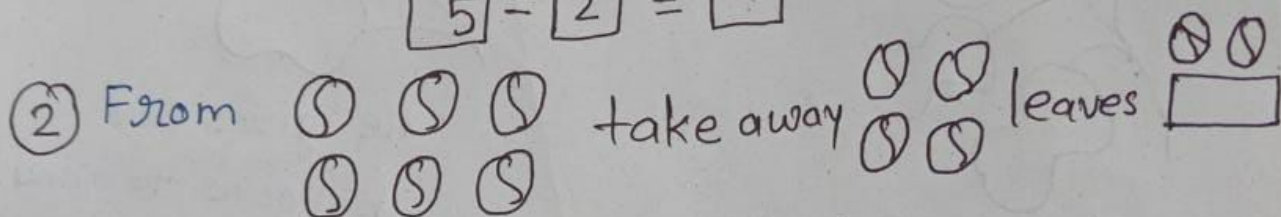 5 - 2 =
2 From take away leaves